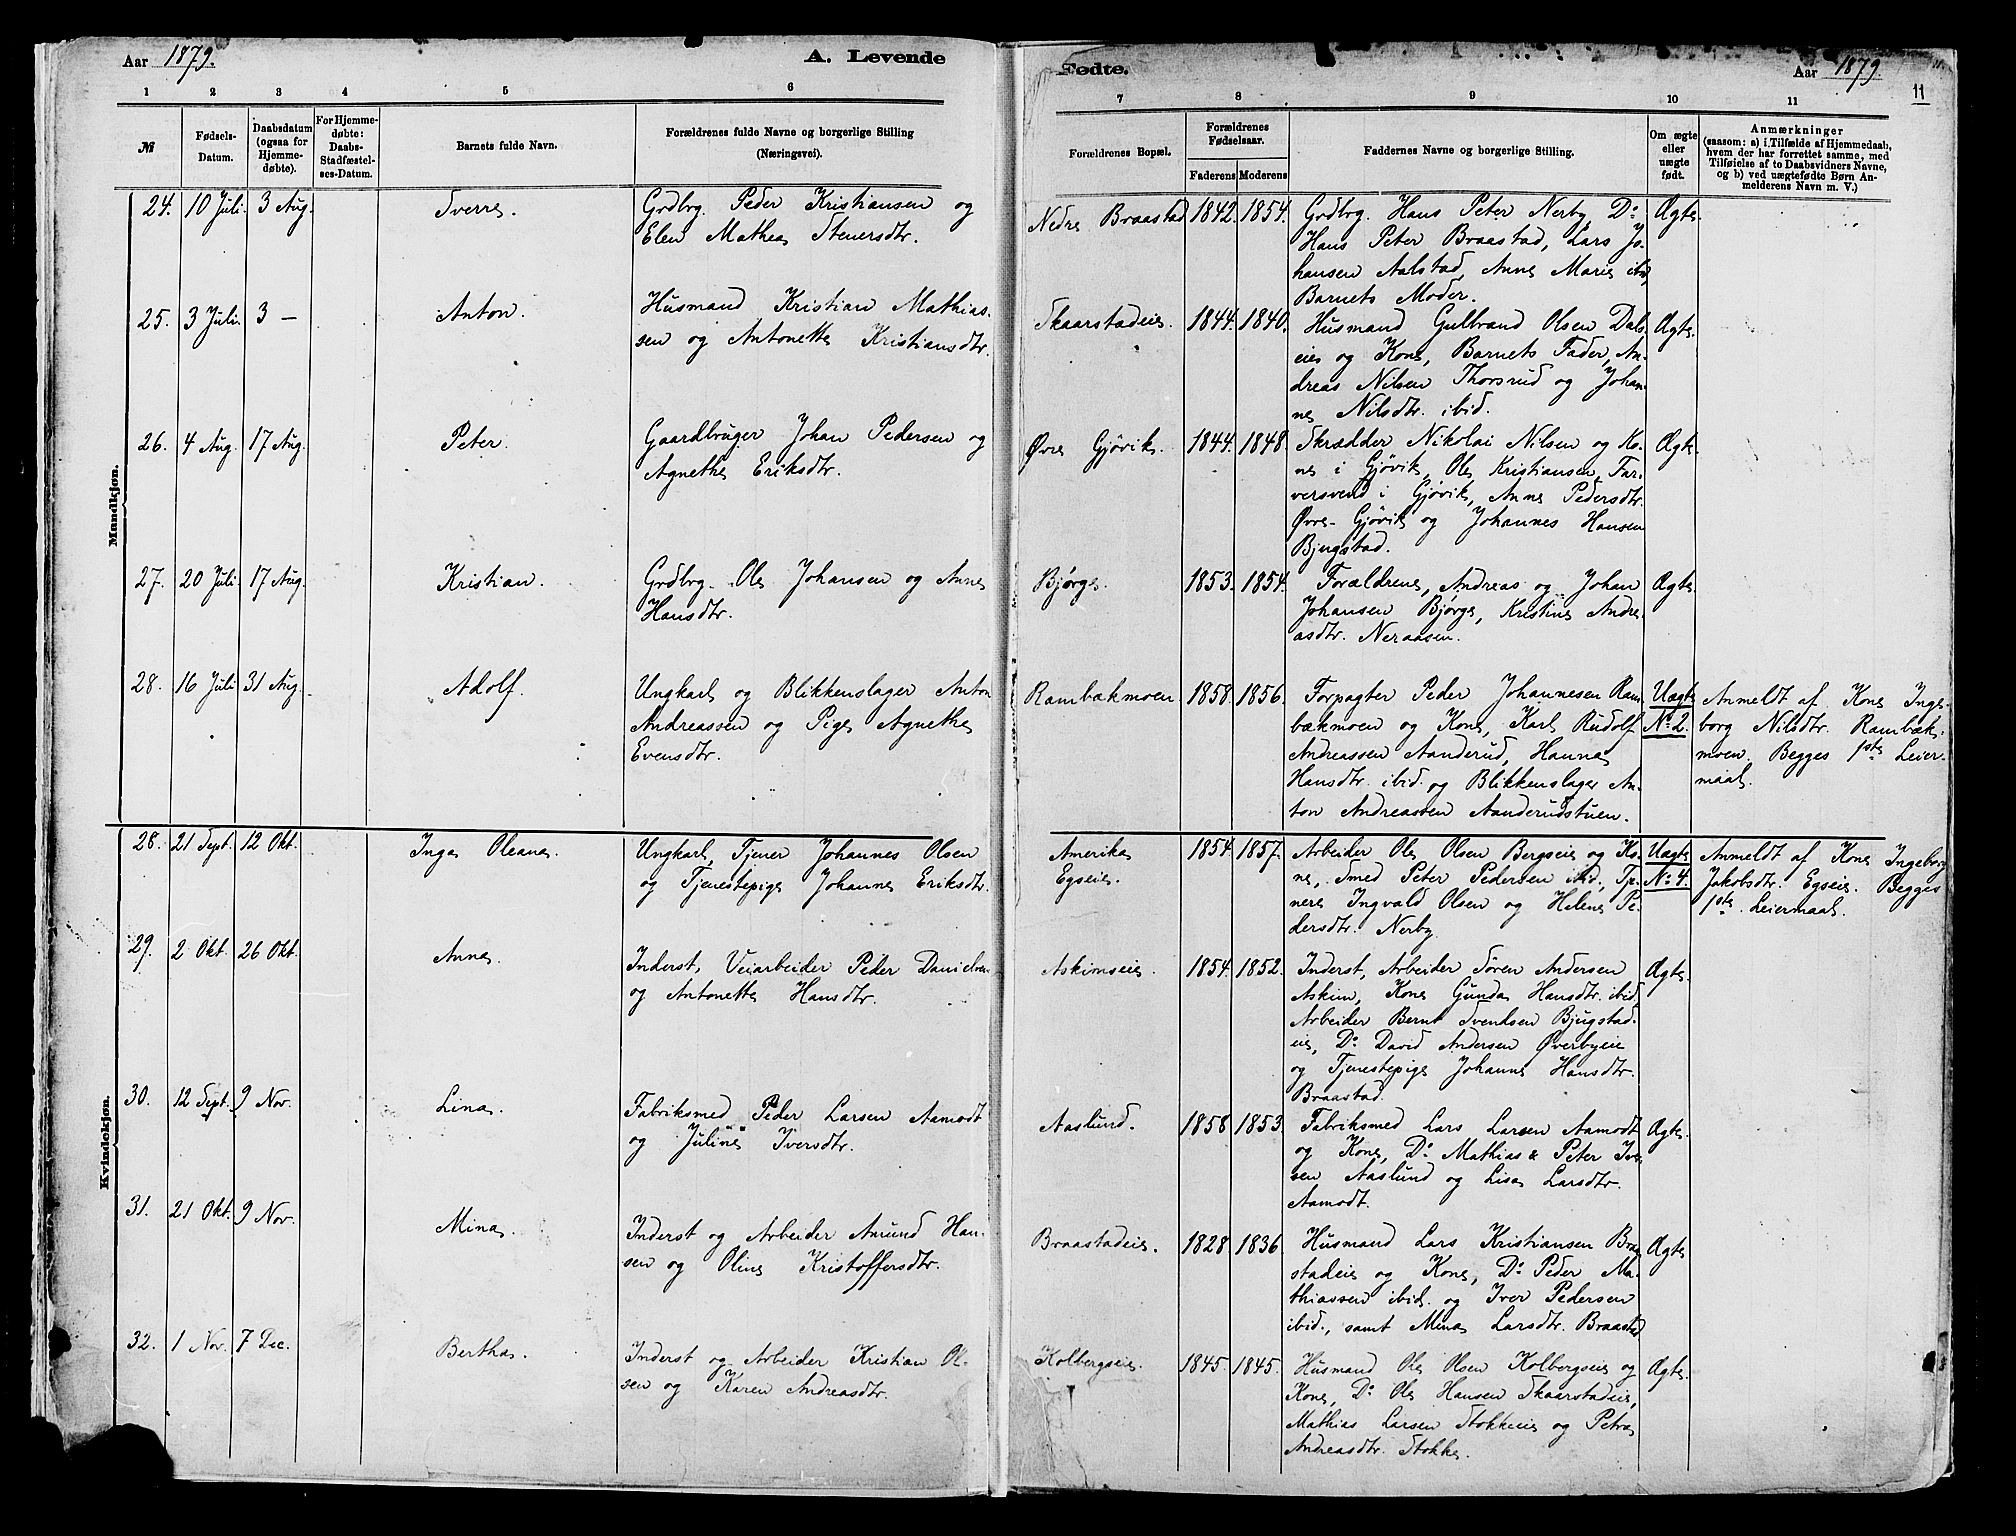 Aar 1879. A. Levende
Fødte. Aar 1879. 11
1 2 3 4 5 6
7 8 9 10 11
№ Fødsels-Datum. Daabsdatum (ogsaa for Hjemme-døbte). For Hjemme-døbte: Daabs-Stadfæstel-ses-Datum. Barnets fulde Navn. Forældrenes fulde Navne og borgerlige Stilling (Næringsvei).
Forældrenes Bopæl. Forældrenes Fødselsaar. Faderens Moderens Faddernes Navne og borgerlige Stilling. Om ægte eller uægte født. Anmærkninger (saasom: a) i Tilfælde af Hjemmedaab, hvem der har forrettet samme, med Tilføielse af to Daabsvidners Navne, og b) ved uægtefødte Børn An-melderens Navn m. V.)
Mandkjøn.
24. 10 Juli 3 Aug. Sverre. Grdbrg. Peder Kristiansen og
Elen Mathea Stenersdtr.
Nedre Braastad 1842. 1854. Grdbrg. Hans Peter Nerby, Do
Hans Peter Braastad, Lars Jo-
hansen Aalstad, Anne Marie ibd,
Barnets Moder.
Ægte.
25. 3 Juli. 3 — Anton. Husmand Kristian Mathias-
sen og Antonette Kristiansdtr.
Skaarstadeie. 1844. 1840. Husmand Gulbrand Olsen Dals-
eie og Kone, Barnets Fader, An-
dreas Nilsen Thorsrud og Johan-
ne Nilsdtr. ibid.
Ægte.
26. 4 Aug. 17 Aug. Peter. Gaardbruger Johan Pedersen og
Agnethe Eriksdtr.
Øvre Gjövik. 1844. 1848. Skrædder Nikolai Nilsen og Ko-
ne i Gjövik, Ole Kristiansen, Far-
versvend i Gjövik, Anne Pedersdtr.
Øvre-Gjövik og Johannes Hansen
Bjugstad.
Ægte.
27. 20 Juli. 17 Aug. Kristian. Grdbrg. Ole Johansen og Anne
Hansdtr.
Bjørge. 1853. 1854. Forældrene, Andreas og Johan
Johansen Bjørge, Kristine Andre-
asdtr. Neraasen.
Ægte.
28. 16 Juli 31 Aug. Adolf. Ungkarl og Blikkenslager Anton
Andreassen og Pige Agnethe
Evensdtr.
Rambækmoen 1858. 1856. Forpagter Peder Johannesen Ram-
bækmoen og Kone, Karl Rudolf
Andreassen Aanderud, Hanna
Hansdtr. ibid. og Blikkenslager An-
ton Andreassen Aanderudstuen.
Uægte
No 2.
Anmeldt af Kone Inge-
borg Nilsdtr. Rambæk-
moen. Begges 1ste Leier-
maal.
Kvindekjøn.
28. 21 Sept. 12 Okt. Inga Oleana. Ungkarl, Tjener Johannes Olsen
og Tjenestepige Johanne Eriksdtr.
Amerika
Egseie.
1854 1857. Arbeider Ole Olsen Bergseie og Ko-
ne, Smed Peter Pedersen ibid., Tje-
nere Ingvald Olsen og Helene Pe-
dersdtr. Nerby.
Uægte
No 4.
Anmeldt af Kone Ingeborg
Jakobsdtr. Egseie. Begges
1ste Leiermaal.
29. 2 Okt. 26 Okt. Anne. Inderst, Veiarbeider Peder Danielsen
og Antonette Hansdtr.
Askimseie. 1854. 1852. Inderst, Arbeider Sören Andersen
Askim, Kone Gunda Hansdtr. ibid,
Arbeider Bernt Svendsen Bjugstad-
eie, Do David Andersen Øverbyeie
og Tjenestepige Johanne Hansdtr.
Braastad.
Ægte
30. 12 Sept. 9 Nov. Lina. Fabriksmed Peder Larsen Aamodt
og Juline Iversdtr.
Aaslund. 1858 1853. Fabriksmed Lars Larsen Aamodt
og Kone, Do Mathias & Peter Iver-
sen Aaslund og Lisa Larsdtr.
Aamodt.
Ægte.
31. 21 Okt. 9 Nov. Mina. Inderst og Arbeider Amund Han-
sen og Oline Kristoffersdtr.
Braastadeie. 1828 1836 Husmand Lars Kristiansen Braa-
stadeie og Kone, Do Peder Ma-
thiassen ibid. og Iver Pedersen
ibid., samt Mina Larsdtr. Braastad
Ægte
32. 1 Nov. 7 Dec. Bertha. Inderst og Arbeider Kristian Ol-
sen og Karen Andreasdtr.
Kolbergseie. 1845 1845. Husmand Ole Olsen Kolbergseie og
Kone, Do Ole Hansen Skaarstadeie,
Mathias Larsen Stokkeeie og Petra
Andreasdtr. Stokke.
Ægte.